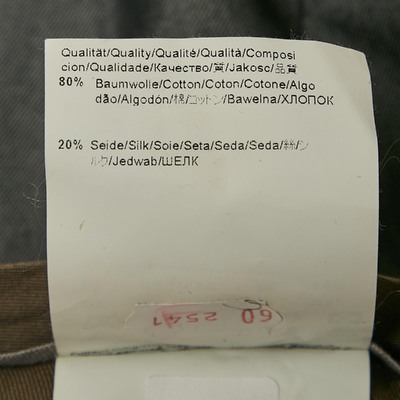 Qualität/Quality/Qualité/Qualità/Composi
cion/Qualidade/Качество/質/Jakosc/品質
80% Baumwolle/Cotton/Coton/Cotone/Algo
dão/Algodón/棉/コットン/Bawelna/ХЛОПОК
20% Seide/Silk/Soie/Seta/Seda/Seda/絲/シ
ルク/Jedwab/ШЕЛК
60 2541